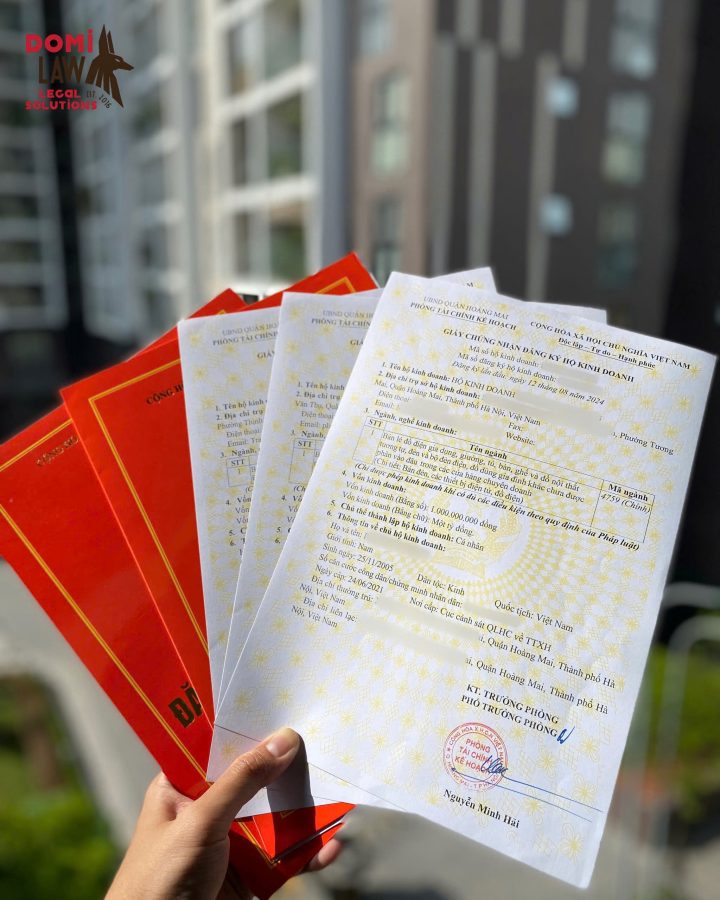 DOMI
LAW
LEGAL EST 2016
SOLUTIONS
CỘNG HÒA
CỘNG H
ĐĂ
UBND QUẬN HOÀNG
PHÒNG TÀI CHÍNH
GIẤY
1. Tên hộ kinh
2. Địa chỉ trụ
Phường Thịnh
Điện thoại
Email: Tra
3. Ngành,
STT
1
4. Vốn
5. C
6.
UBND QUẬN H
PHÒNG TÀI CHÍNH KẾ HOẠCH
GIẤY
1. Tên hộ kinh
2. Địa chỉ trụ
Văn Thụ, Quậ
Điện thoại
Email: ph
3. Ngành
STT
1
4. Vốn
5. C
6. T
UBND QUẬN HOÀNG MAI
PHÒNG TÀI CHÍNH KẾ HOẠCH
CỘNG HÒA XÃ HỘI CHỦ NGHĨA VIỆT NAM
Độc lập – Tự do – Hạnh phúc
GIẤY CHỨNG NHẬN ĐĂNG KÝ HỘ KINH DOANH
Mã số hộ kinh doanh:
Mã số đăng ký hộ kinh doanh:
Đăng ký lần đầu, ngày 12 tháng 08 năm 2024
1. Tên hộ kinh doanh: HỘ KINH DOANH
2. Địa chỉ trụ sở hộ kinh doanh: , Phường Tương
Mai, Quận Hoàng Mai, Thành phố Hà Nội, Việt Nam
Điện thoại: Fax:
Email: Website:
3. Ngành, nghề kinh doanh:
STT Tên ngành Mã ngành
1 Bán lẻ đồ điện gia dụng, giường, tủ, bàn, ghế và đồ nội thất 4759 (Chính)
tương tự, đèn và bộ đèn điện, đồ dùng gia đình khác chưa được
phân vào đâu trong các cửa hàng chuyên doanh
(Chi tiết: Bán đèn, các thiết bị điện tử, đồ điện)
(Chỉ được phép kinh doanh khi có đủ các điều kiện theo quy định của Pháp luật)
4. Vốn kinh doanh:
Vốn kinh doanh (Bằng số): 1.000.000.000 đồng
Vốn kinh doanh (Bằng chữ): Một tỷ đồng.
5. Chủ thể thành lập hộ kinh doanh: Cá nhân
6. Thông tin về chủ hộ kinh doanh:
Họ và tên:
Giới tính: Nam
Sinh ngày: 25/11/2005 Dân tộc: Kinh Quốc tịch: Việt Nam
Số căn cước công dân/chứng minh nhân dân:
Ngày cấp: 24/06/2021 Nơi cấp: Cục cảnh sát QLHC về TTXH
Địa chỉ thường trú: , Quận Hoàng Mai, Thành phố Hà
Nội, Việt Nam
Địa chỉ liên lạc: , Quận Hoàng Mai, Thành phố Hà
Nội, Việt Nam
KT. TRƯỞNG PHÒNG
PHÓ TRƯỞNG PHÒNG
PHÒNG
TÀI CHÍNH
KẾ HOẠCH
Nguyễn Minh Hải